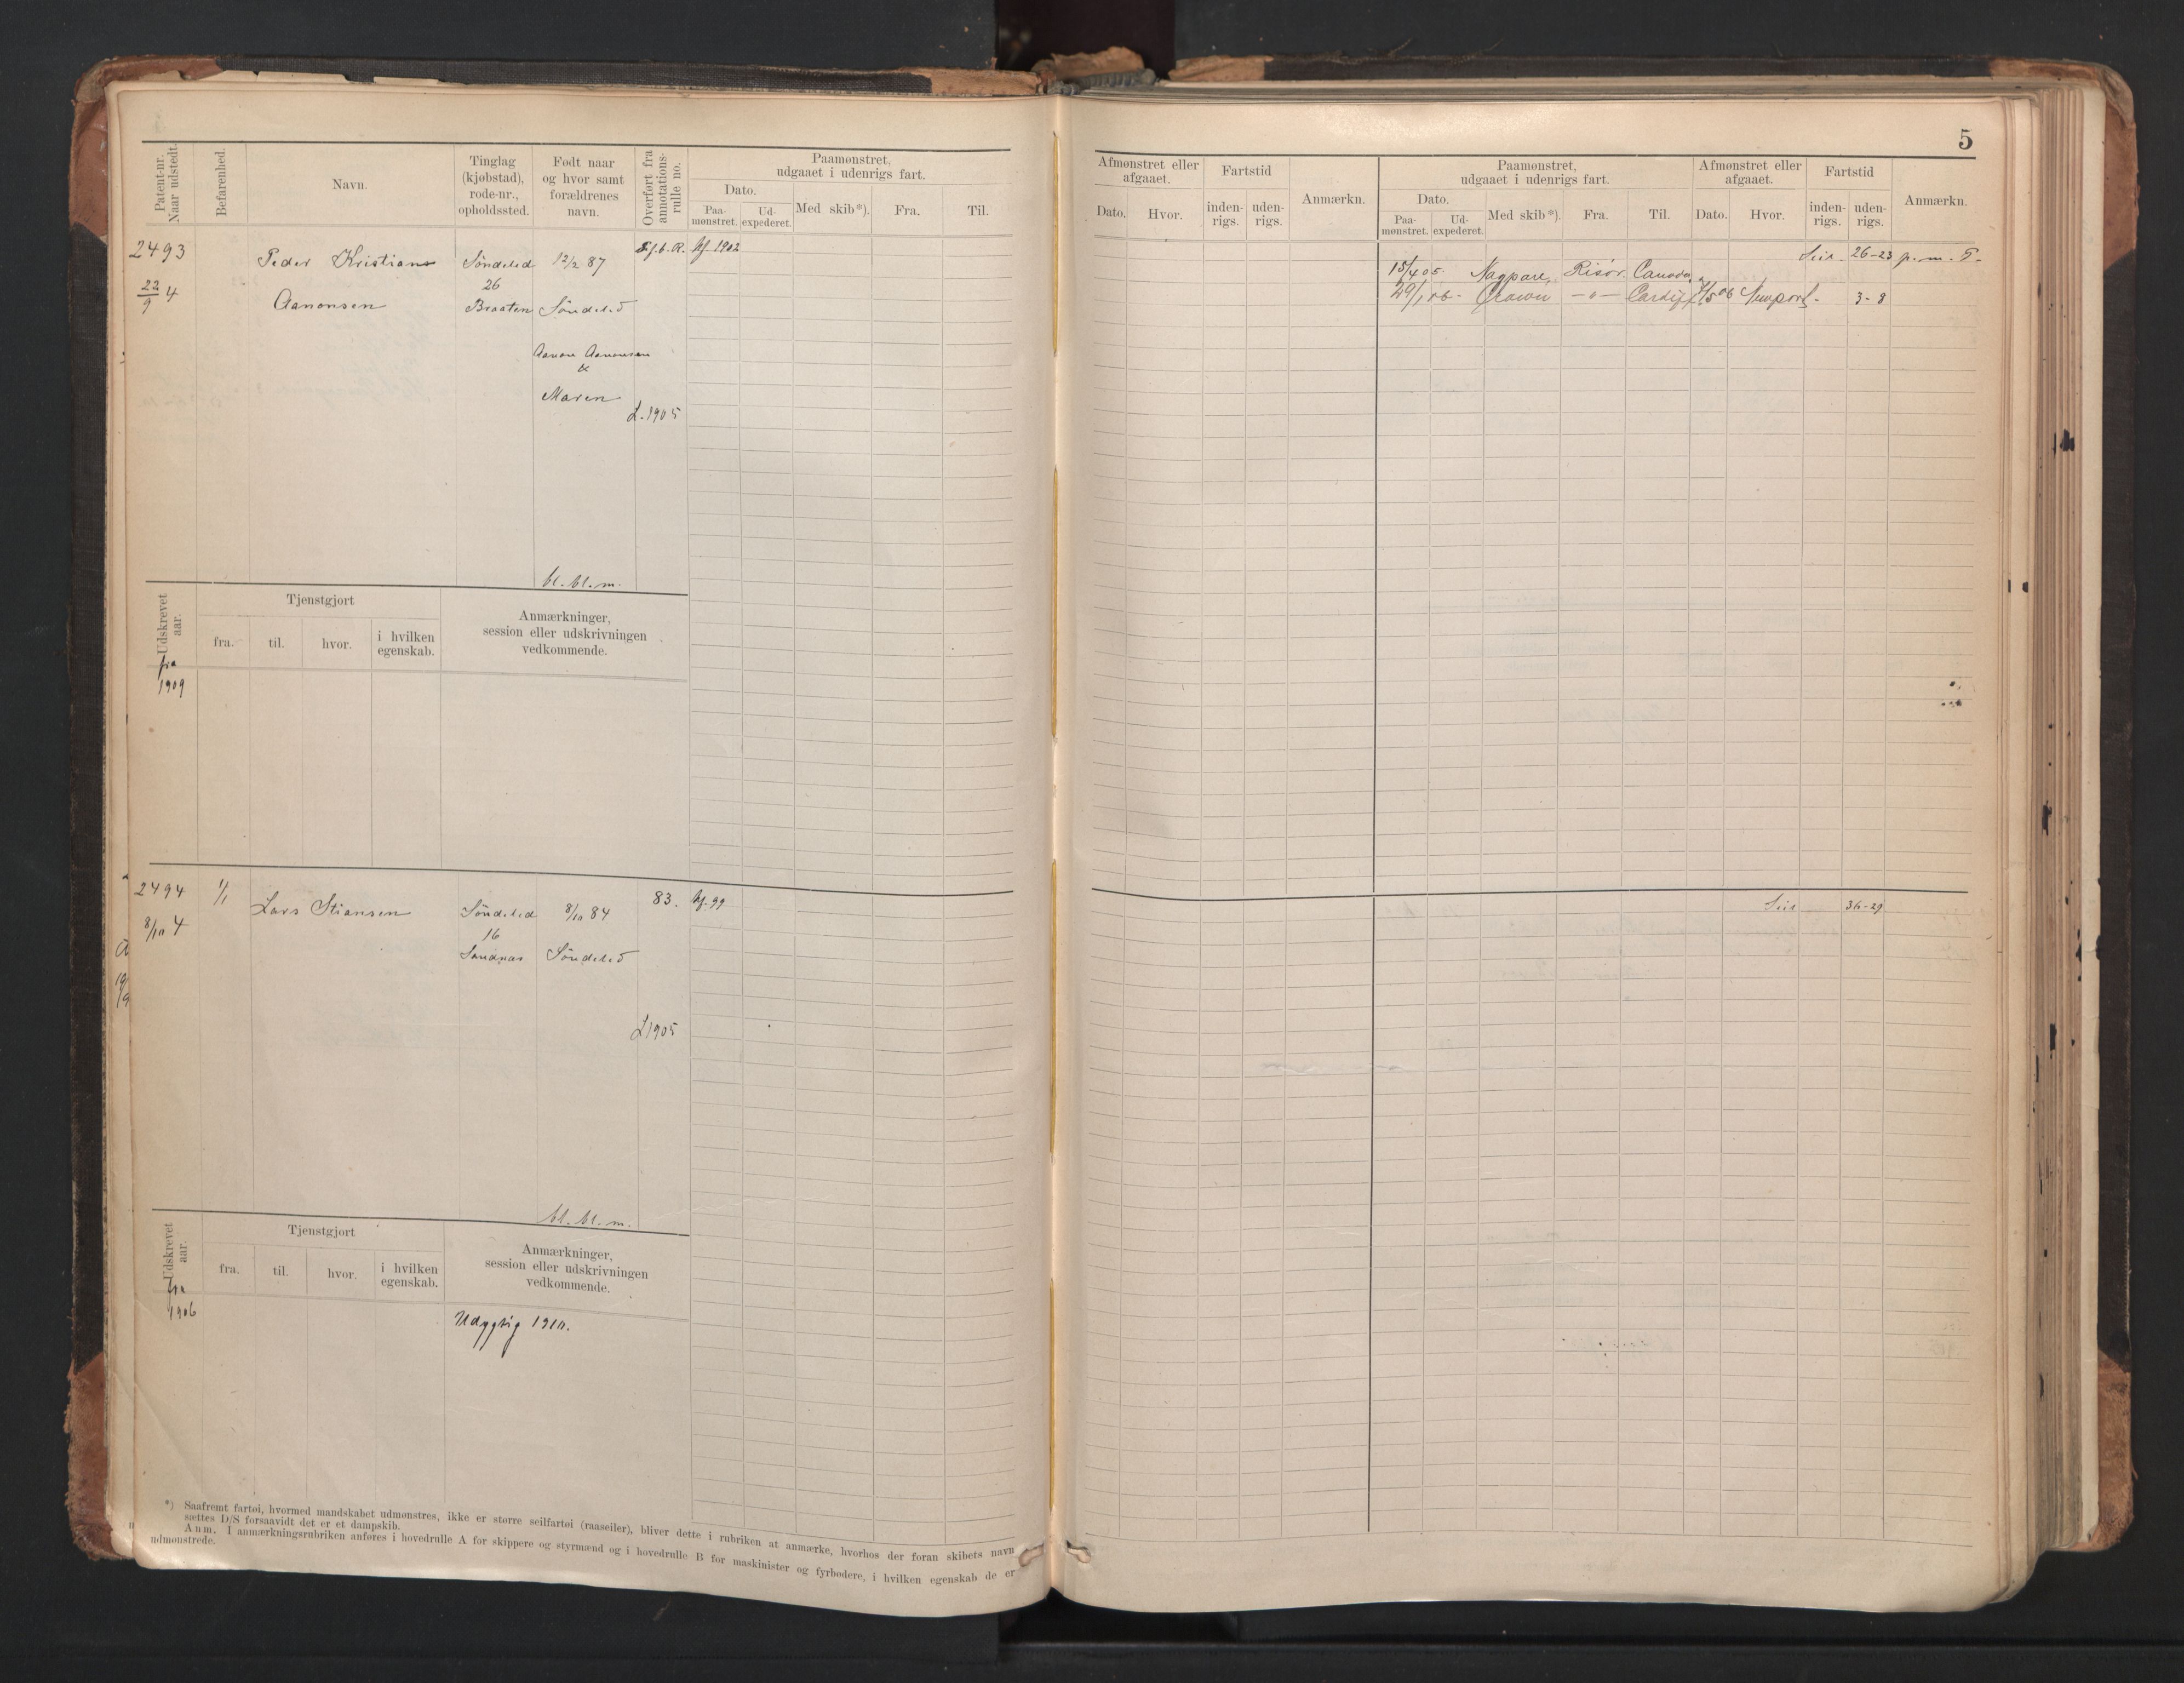 5
Patent-nr.
Naar udstedt.
Befarenhed.
Navn.
Tinglag
(kjøbstad),
rode-nr.,
opholdssted.
Født naar
og hvor samt
forældrenes
navn.
Overført fra
annotations-
rulle no.
Paamønstret,
udgaaet i udenrigs fart.
Dato.
Paa-
mønstret.
Ud-
expederet.
Med skib*).
Fra.
Til.
Afmønstret eller
afgaaet.
Dato.
Hvor.
Fartstid
inden-
rigs.
uden-
rigs.
Anmærkn.
Paamønstret,
udgaaet i udenrigs fart.
Dato.
Paa-
mønstret.
Ud-
expederet.
Med skib*).
Fra.
Til.
Afmønstret eller
afgaaet.
Dato.
Hvor.
Fartstid
inden-
rigs.
uden-
rigs.
Anmærkn.
2493
22/9 4
Peder Kristians
Aanonsen
Søndeled
26
Braaten
12/2 87
Søndeled
Aanon Aanonsen
&
Maren
1902
L. 1905
bl. bl. m.
26-23 p. m.
15/4 05. Risør. Canada
29/1 06. Crown -"- Cardiff 06 Newport. 3-8
Udskrevet
aar.
Tjenstgjort
fra.
til.
hvor.
i hvilken
egenskab.
Anmærkninger,
session eller udskrivningen
vedkommende.
fra
1909
2494
8/10 4
1/1
Lars Stiansen
Søndeled
16
Sandnæs
8/10 84
Søndeled
83.
99
L 1905
bl. bl. m.
36-29
Udskrevet
aar.
Tjenstgjort
fra.
til.
hvor.
i hvilken
egenskab.
Anmærkninger,
session eller udskrivningen
vedkommende.
fra
1906
Udygtig 1910.
*) Saafremt fartøi, hvormed mandskabet udmønstres, ikke er større seilfartøi (raaseiler), bliver dette i rubriken at anmærke, hvorhos der foran skibets navn
sættes D/S forsaavidt det er et dampskib.
Anm. I anmærkningsrubriken anføres i hovedrulle A for skippere og styrmænd og i hovedrulle B for maskinister og fyrbødere, i hvilken egenskab de er
udmønstrede.